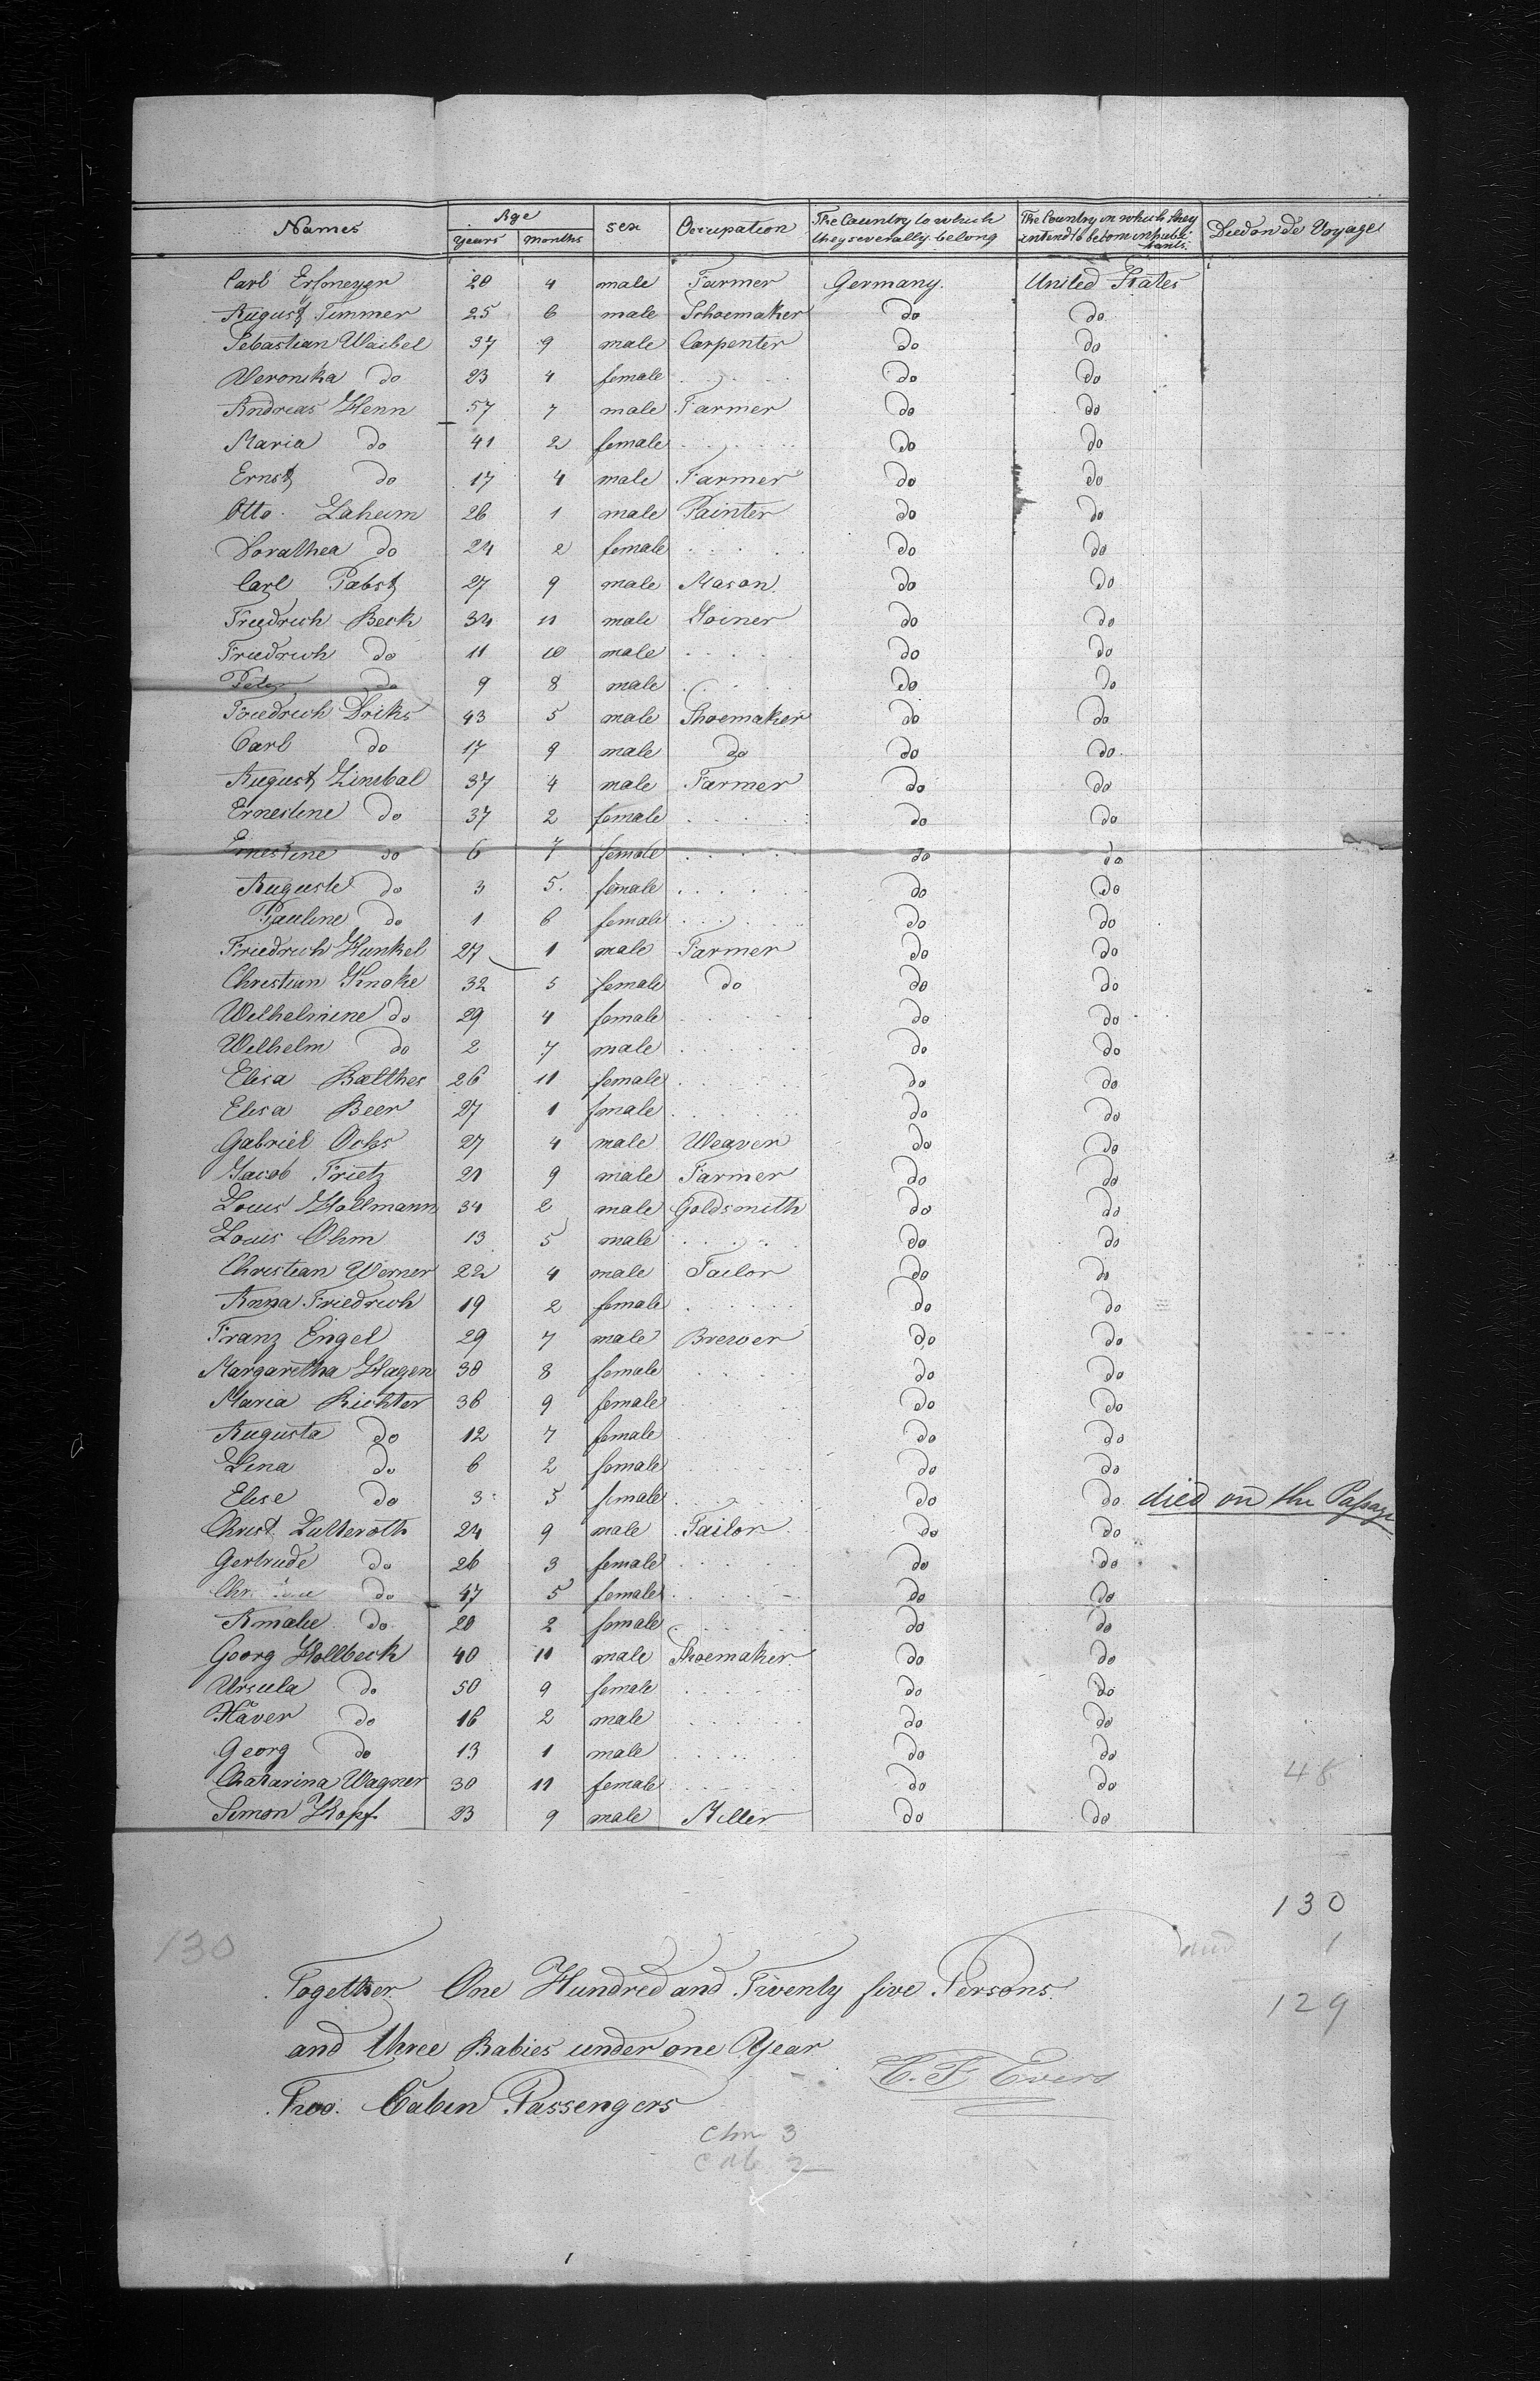 Names Age sex Occupation The Country to which they severally belong The Country in which they intend to becom inhabitants. Died on de Voyage
Years Months
Carl 20 4 male Farmer Germany. United States
August Timmer 25 6 male Schoemaker do do
Sebastian Waibel 37 9 male Carpenter do do
Weronika do 23 4 female do do
Andreas Henn 57 7 male Farmer do do
Maria do 41 2 female do do
Ernst do 17 4 male Farmer do do
Otto Laheim 26 1 male Painter do do
Dorathea do 24 2 female do do
Carl Pabst 27 9 male Mason do do
Friedrich Beck 34 11 male Joiner do do
Friedrich do 11 10 male do do
Peter do 9 8 male do do
Friedrich Driks 43 5 male Shoemaker do do
Carl do 17 9 male do do do
August Zimbal 37 4 male Farmer do do
Ernestine do 37 2 female do do
Ernestine do 6 7 female do do
Auguste do 3 5 female do do
Pauline do 1 6 female do do
Friedrich Hunkel 27 1 male Farmer do do
Christian Knoke 32 5 female do do do
Wilhelmine do 29 4 female do do
Wilhelm do 2 7 male do do
Elisa Balthes 26 11 female do do
Elisa Beer 27 1 female do do
Gabriel Ochs 27 4 male Weaver do do
Jacob Frietz 21 9 male Farmer do do
Louis Hollmann 34 2 male Goldsmith do do
Louis Ohm 13 5 male do do
Christian Werner 22 4 male Tailor do do
Anna Friedrich 19 2 female do do
Franz Engel 29 7 male Brewer do do
Margaretha Hagen 30 8 female do do
Maria Richter 36 9 female do do
Augusta do 12 7 female do do
Lena do 6 2 female do do
Elise do 3 5 female do do died on the Passage
Christ. Lutteroth 24 9 male Tailor do do
Gertrude do 26 3 female do do
do 47 5 female do do
Amalie do 20 2 female do do
Georg Hollbeck 40 11 male Shoemaker do do
Ursula do 50 9 female do do
Xaver do 16 2 male do do
Georg do 13 1 male do do
Chatarina Wagner 30 11 female do do
Simon Hopf 23 9 male Miller do do
48
130
130
1
Together One Hundred and Twenty five Persons
129
and three Babies under one Year
C. F. Evers
Two Cabin Passengers
Chn 3
Cab 2